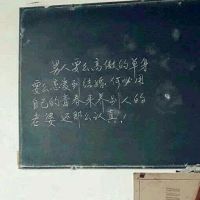 男人要么高傲的单身
要么恋爱到结婚何必用
自己的青春来养别人的
老婆还那么认真！